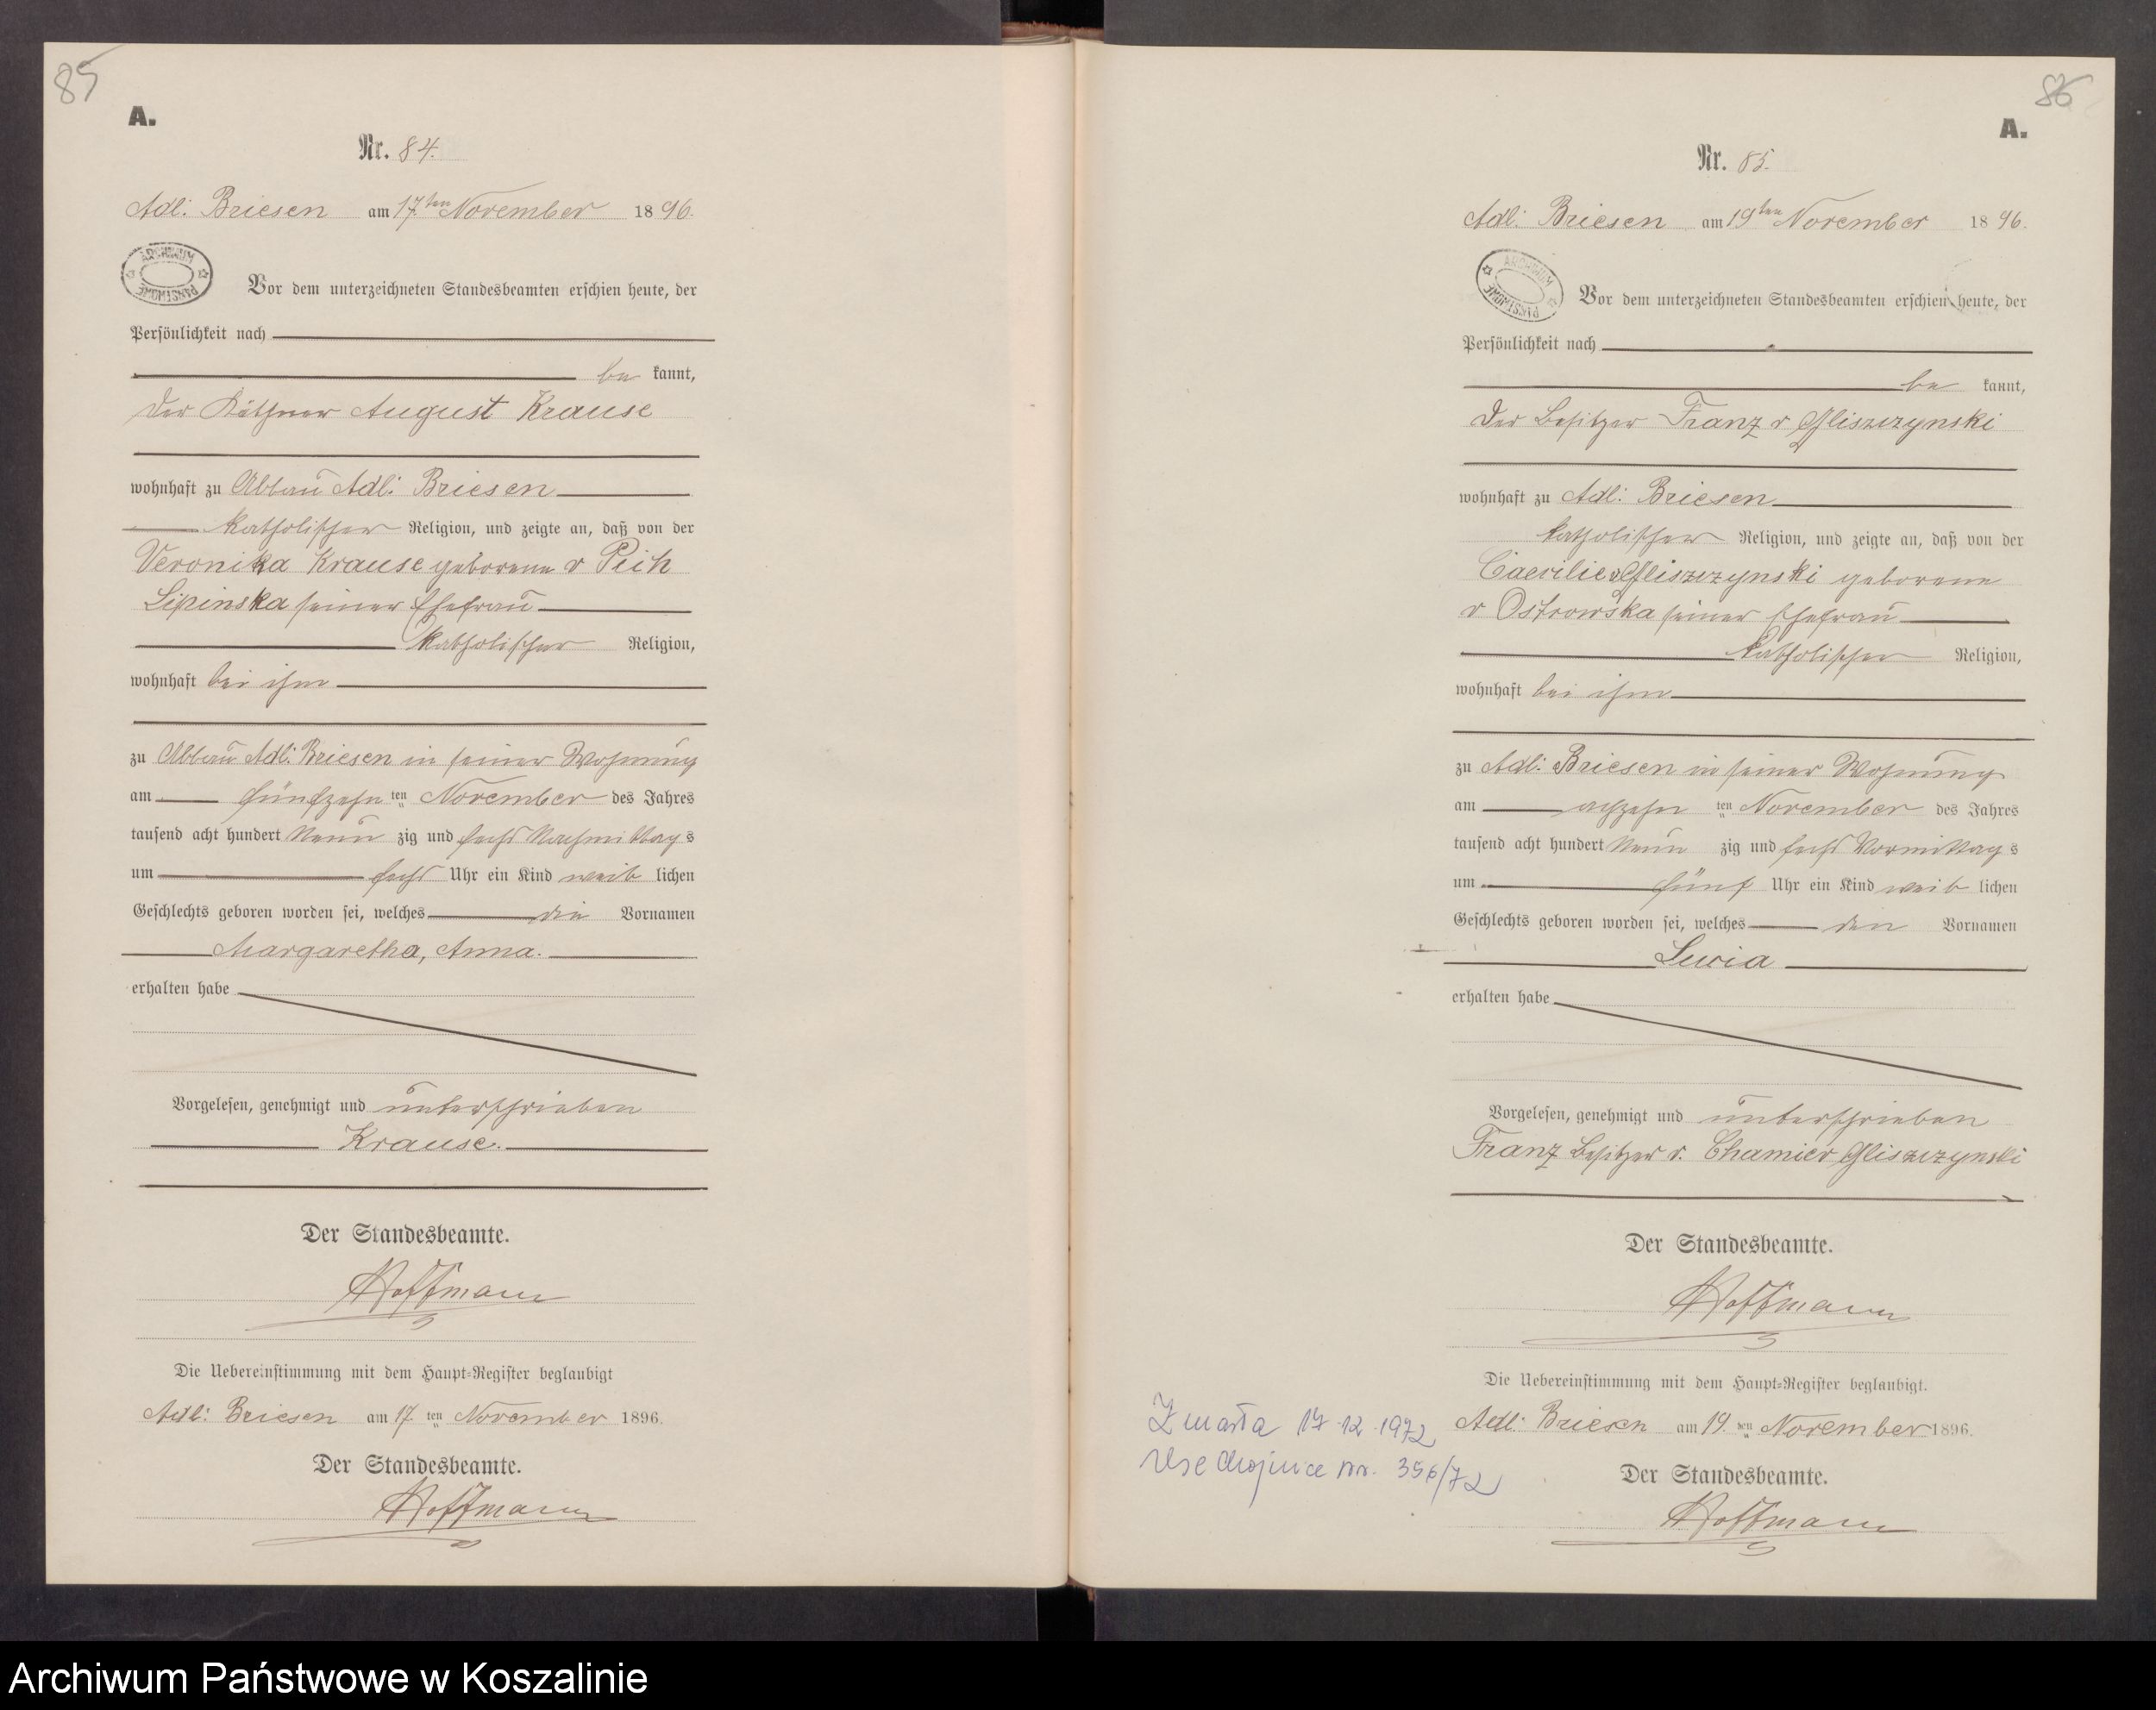 85
A.
Nr. 84.
Adl: Briesen am 17.ten November 1896.
ARCHIWUM PAŃSTWOWE
Vor dem unterzeichneten Standesbeamten erschien heute, der
Persönlichkeit nach
be kannt,
der Käthner August Krause
wohnhaft zu Abbau Adl: Briesen
katholischer Religion, und zeigte an, daß von der
Veronika Krause geborene v Pich
Lipinska seiner Ehefrau
katholischer Religion,
wohnhaft bei ihm
zu Abbau Adl: Briesen in seiner Wohnung
am fünfzehn ten November des Jahres
tausend acht hundert Neun zig und sechs Nachmittag s
um sechs Uhr ein Kind weib lichen
Geschlechts geboren worden sei, welches die Vornamen
Margaretha, Anna.
erhalten habe
Vorgelesen, genehmigt und unterschrieben
Krause.
Der Standesbeamte.
Hoffmann
Die Uebereinstimmung mit dem Haupt-Register beglaubigt
Adl: Briesen am 17. ten November 1896.
Der Standesbeamte.
Hoffmann
86
A.
Nr. 85.
Adl: Briesen am 19ten November 1896.
ARCHIWUM PAŃSTWOWE
Vor dem unterzeichneten Standesbeamten erschien heute, der
Persönlichkeit nach
be kannt,
der Besitzer Franz v Gliszczynski
wohnhaft zu Adl: Briesen
katholischer Religion, und zeigte an, daß von der
Caecilie v Gliszczynski geborene
v Ostrowska seiner Ehefrau
katholischer Religion,
wohnhaft bei ihm
zu Adl: Briesen in seiner Wohnung
am achzehn ten November des Jahres
tausend acht hundert Neun zig und sechs Vormittag s
um fünf Uhr ein Kind weib lichen
Geschlechts geboren worden sei, welches den Vornamen
Lucia
erhalten habe
Vorgelesen, genehmigt und unterschrieben
Franz Besitzer v. Chamier Gliszczynski
Der Standesbeamte.
Hoffmann
Die Uebereinstimmung mit dem Haupt-Register beglaubigt.
Adl: Briesen am 19. ten November 1896.
Der Standesbeamte.
Hoffmann
Zmarła 17.12.1972
Usc Chojnice nr. 356/72
Archiwum Państwowe w Koszalinie